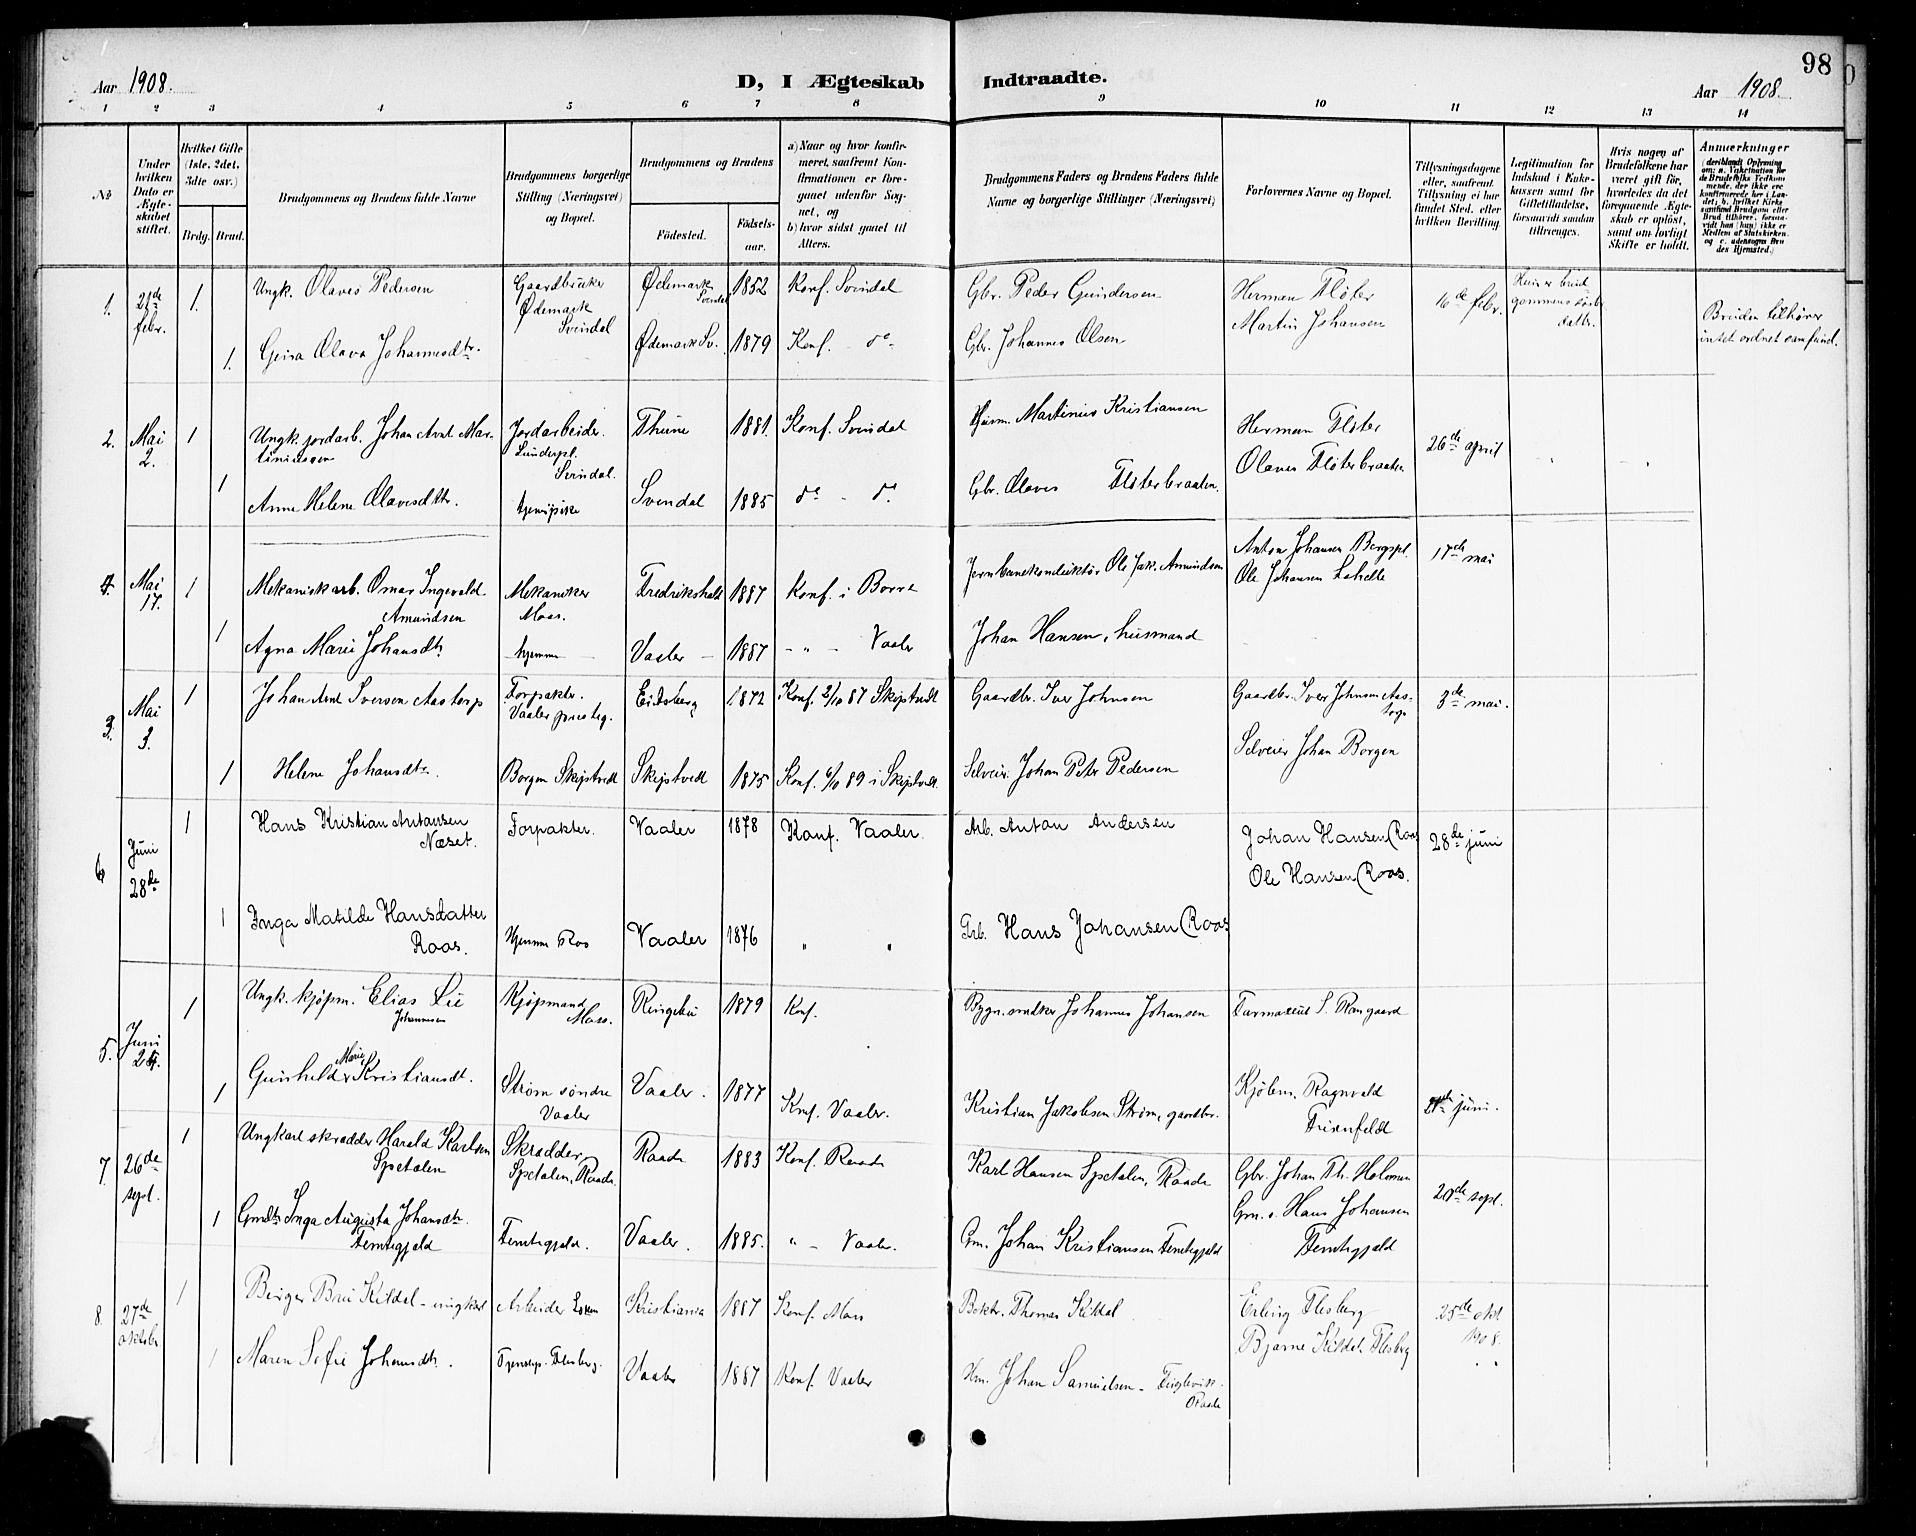 98
Aar 1908.
D, I Ægteskab Indtraadte.
Aar 1908.
1 2 3 4 5 6 7 8 9 10 11 12 13 14
No
Under hvilken Dato er Ægteskabet stiftet.
Hvilket Gifte (1ste, 2det, 3die osv.)
Brdg. Brud.
Brudgommens og Brudens fulde Navne
Brudgommens borgerlige Stilling (Næringsvei) og Bopæl.
Brudgommens og Brudens
Fødested.
Fødselsaar.
a) Naar og hvor konfirmeret, saafremt Konfirmationen er foregaaet udenfor Sognet, og
b) hvor sidst gaaet til Alters.
Brudgommens Faders og Brudens Faders fulde Navne og borgerlige Stillinger (Næringsvei)
Forlovernes Navne og Bopæl.
Tillysningsdagene eller, saafremt Tillysning ei har fundet Sted, efter hvilken Bevilling.
Legitimation for Indskud i Enkekassen samt for Giftetilladelse, forsaavidt saadan tiltrænges.
Hvis nogen af Brudefolkene har været gift før, hvorledes da det foregaaende Ægteskab er opløst, samt om lovligt Skifte er holdt.
Anmærkninger
1. 21de febr. 1. Ungk. Olaves Pedersen Gaardbruker Ødemark Svindal Ødemark Svindal 1852 Konf. Svindal Gbr. Peder Gundersen Herman Fløter Martin Johansen 16de febr.
Bruden tilhører intet ordnet samfund.
1. Olava Johannesdtr. Ødemark Sv. 1879 Konf. do Gbr. Johannes Olsen
2. Mai 2. 1 Ungk. jordarb. Johan Arnt Martiniussen Jordarbeider. Svindal. Thune 1881. Konf. Svindal Husm. Martinius Kristiansen Herman Fløter Olaves Fløterbraaten 26de april
1 Anne Helene Olavesdtr. tjenepike Svendal 1885 do - do Gbr. Olaves Fløterbraaten.
4. Mai 17. 1 Mekanisk arb. Omar Ingevald Amundsen Mekaniker Moss. Fredrikshald 1887 Konf. i Borre Jernbanekonduktør Ole Jak. Amundsen Anton Johansen Bergspl. Ole Johansen 17de mai
1 Agna Marie Johansdtr hjemme Vaaler 1887 - " - Vaaler Johan Hansen, husmand
3. Mai 3. 1 Johan Arnt Iversen Aastorp Forpakter. Vaaler presteg. Eidsberg 1872 Konf. 2/10 87 Skiptvedt Gaardbr. Iver Johnsen Gaardbr. Iver Johnsen Aastorp 3de mai.
Selveier Johan Borgen
1 Helene Johansdtr. Borgen Skiptvedt Skiptvedt 1875 Konf. 6/10 89 i Skiptvedt. Selveier Johan Peter Pedersen
6 Juni 28de 1 Hans Kristian Antonsen Næset. Forpakter. Vaaler 1878 Konf. Vaaler. Arb. Anton Andersen Johan Hansen (Roos Ole Hansen (Roos. 28de juni
1 Inga Matilde Hansdatter Roos. Hjemme Roos Vaaler 1876 " " Arb. Hans Johansen (Roos
5. Juni 24. 1 Ungk. kjøpm. Elias Lie Johannesen Kjøpmand Moss. Ringebu 1879 Knf. Bygn.snedker Johannes Johansen Farmaceut S. Rangaard
1 Gunhilde Marie Kristiansdt. Strøm søndre Vaaler Vaaler. 1877 Knf. Vaaler. Kristian Jakobsen Strøm, gaardbr. Kjøbm. Ragnvald 21de juni.
7. 26de sept. 1 Ungkarl skrædder Harald Karlsen Spetalen Skrædder, Spetalen, Raade. Raade 1883 Konf. Raade Karl Hansen Spetalen, Raade Gbr. Johan Th. Holmsen Gm. s. Hans Johansen Femtegjeld 20de sept.
1 Gmdtr Inga Augusta Johansdtr. Femtegjeld Femtegjeld. Vaaler. 1885. " - Vaaler. Gm. Johan Kristiansen Femtegjeld
8. 27de oktober 1 Birger Bru Kildal - ungkarl Arbeider Kristiania 1887 Konf. Moss Boktr. Thomas Kildal. Erling Flesberg Bjarne Kildal Flesberg 25de okt 1908.
1 Maren Sofie Johansdtr. Tjenestep. Flesberg. Vaaler 1887 Konf. Vaaler Hm. Johan Samuelsen - Fuglevik. Raade